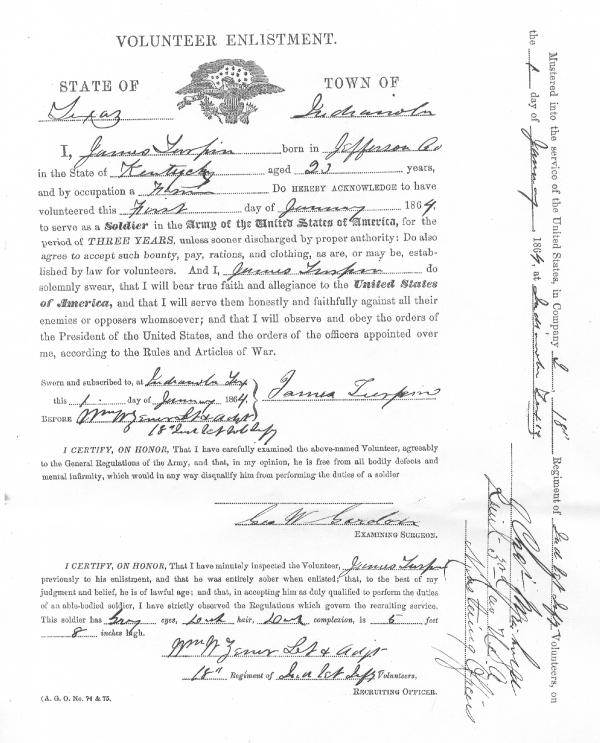 VOLUNTEER ENLISTMENT.
STATE OF TOWN OF
Texas Indianola
I, James Turpin born in Jefferson Co
in the State of Kentucky aged 23 years,
and by occupation a DO HEREBY ACKNOWLEDGE to have
volunteered this First day of January 1864,
to serve as a Soldier in the Army of the United States of America, for the
period of THREE YEARS, unless sooner discharged by proper authority: Do also
agree to accept such bounty, pay, rations, and clothing, as are, or may be, estab-
lished by law for volunteers. And I, James Turpin do
solemnly swear, that I will bear true faith and allegiance to the United States
of America, and that I will serve them honestly and faithfully against all their
enemies or opposers whomsoever; and that I will observe and obey the orders
of the President of the United States, and the orders of the officers appointed over
me, according to the Rules and Articles of War.
Sworn and subscribed to, at Indianola Tex
this 1 day of January 1864, James Turpin
BEFORE Wm W Zener Lt & Adjt
18" Ind
I CERTIFY, ON HONOR, That I have carefully examined the above-named Volunteer, agreeably
to the General Regulations of the Army, and that, in my opinion, he is free from all bodily defects and
mental infirmity, which would in any way disqualify him from performing the duties of a soldier
Geo W Gordon
EXAMINING SURGEON.
I CERTIFY, ON HONOR, That I have minutely inspected the Volunteer, James Turpin
previously to his enlistment, and that he was entirely sober when enlisted; that, to the best of my
judgment and belief, he is of lawful age; and that, in accepting him as duly qualified to perform the duties
of an able-bodied soldier, I have strictly observed the Regulations which govern the recruiting service.
This soldier has Gray eyes, Dark hair, Dark complexion, is 5 feet
8 inches high.
Wm W Zener Lt & Adjt
18" Regiment of Ind Volunteers,
RECRUITING OFFICER.
(A. G. O. No. 74 & 75.
Mustered into the service of the United States, in Company I, 18" Regiment of Ind Volunteers, on
the 1 day of January, 1864, at Indianola Texas
Mustering Officer